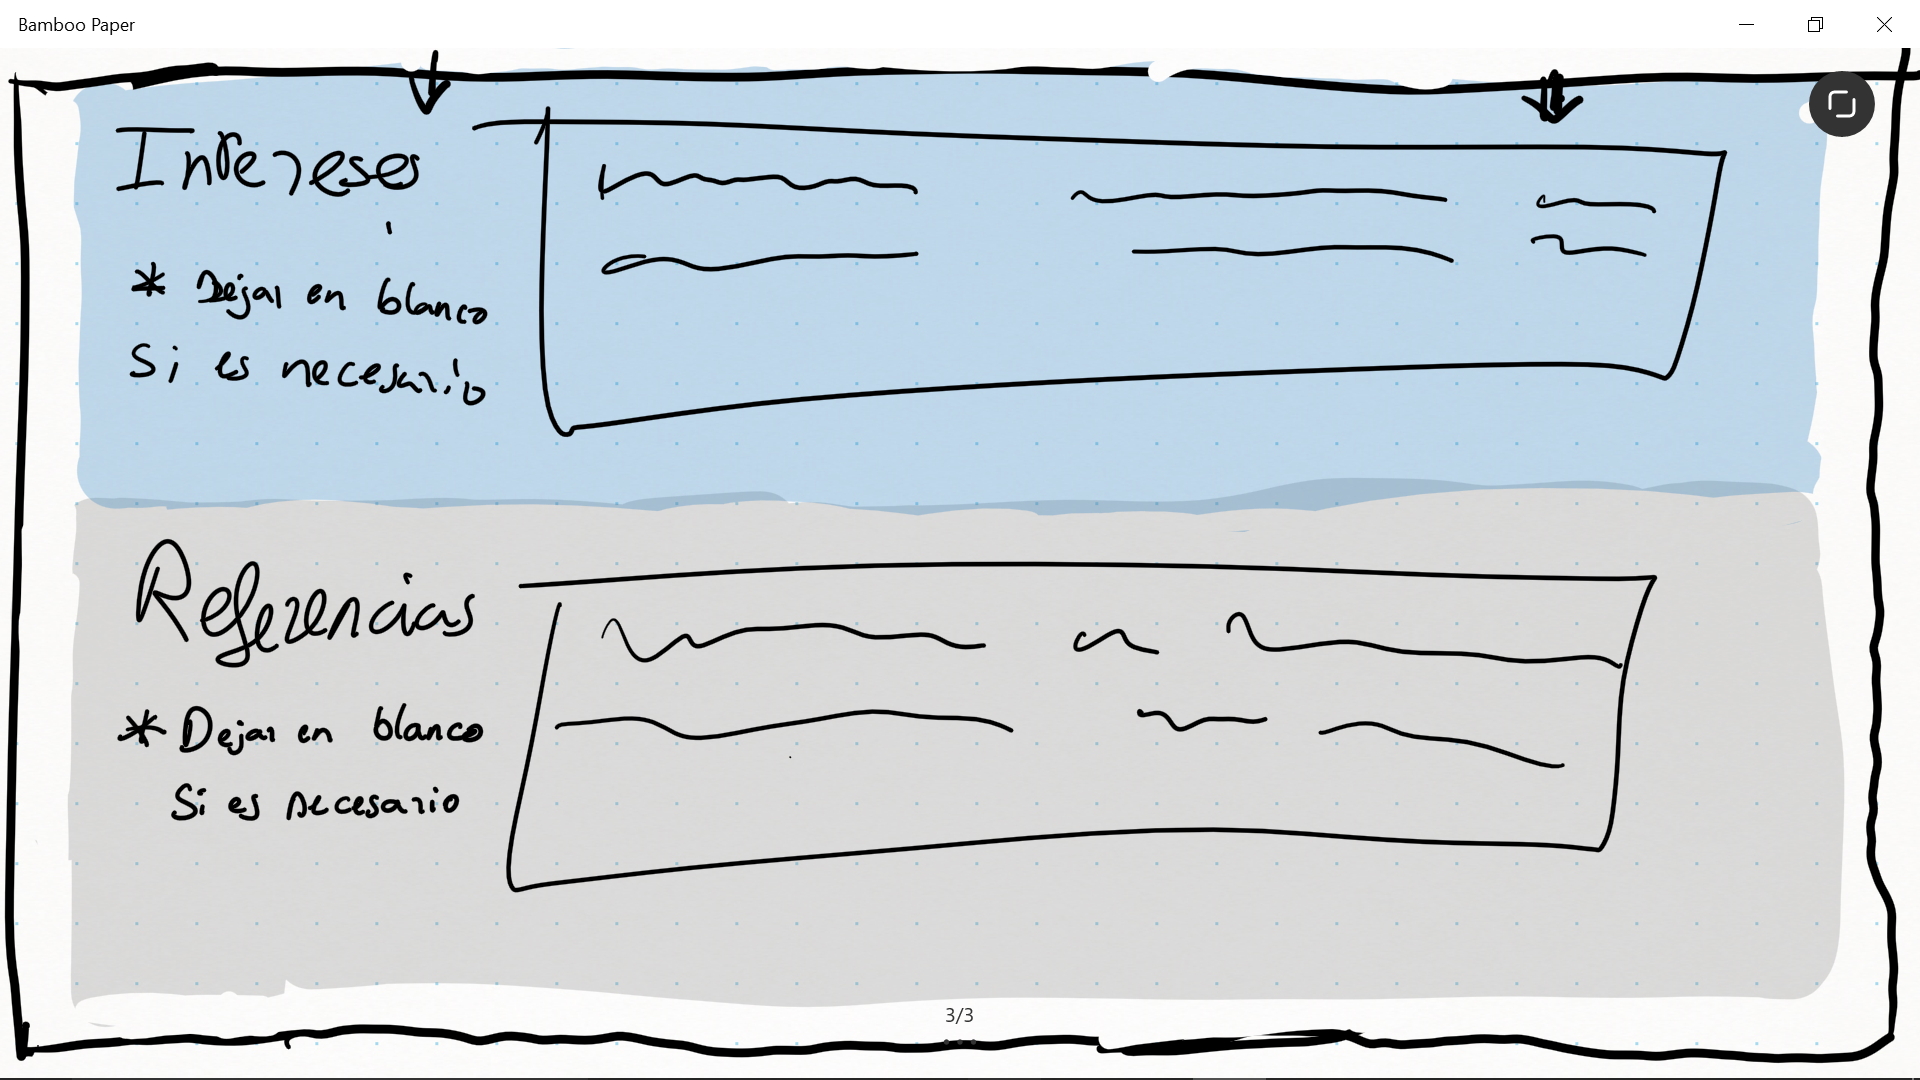 Bamboo Paper
Intereses
* Dejar en blanco
Si es necesario
Referencias
* Dejar en blanco
Si es necesario
3/3